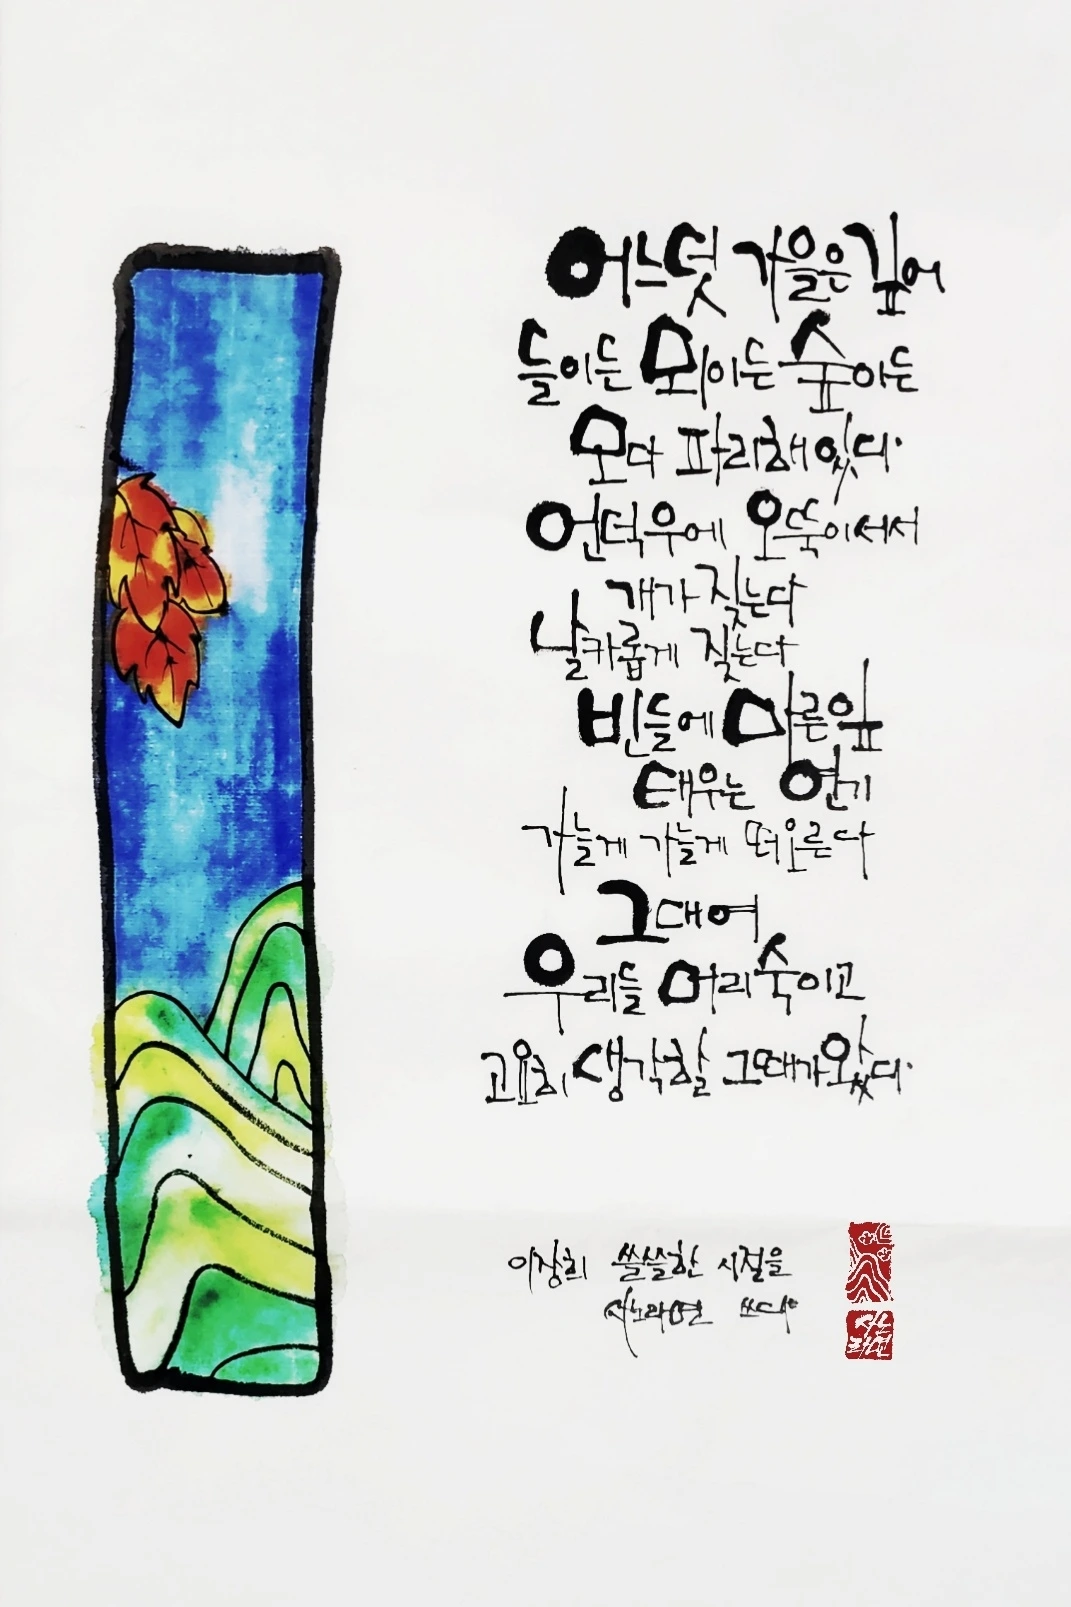 어느덧 가을은 깊어
들이든 뫼이든 숲이든
모다 파리해 있다.
언덕우에 오뚝이 서서
개가 짖는다
날카롭게 짖는다
빈들에 마른잎
태우는 연기
가늘게 가늘게 떠오른다
그대여
우리들 머리숙이고
고요히 생각할 그때가 왔다.
이장희 쓸쓸한 시절을
서노라연 쓰다